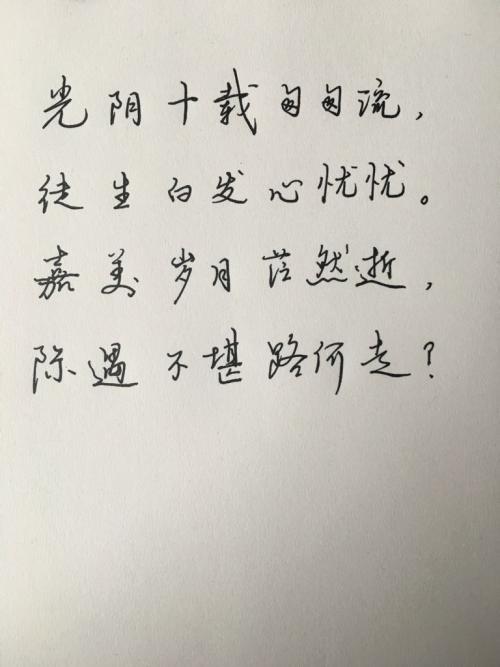 光阴十载匆匆流，
徒生白发心忧忧。
嘉美岁月茫然逝，
际遇不堪路何走？